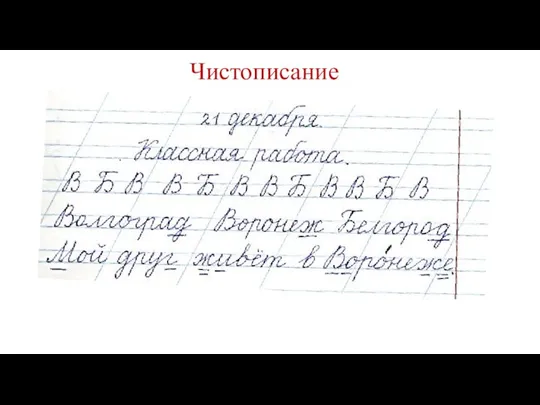 Чистописание
21 декабря.
Классная работа.
В Б В В Б В В Б В В Б В
Волгоград Воронеж Белгород
Мой друг живёт в Воро́неже.